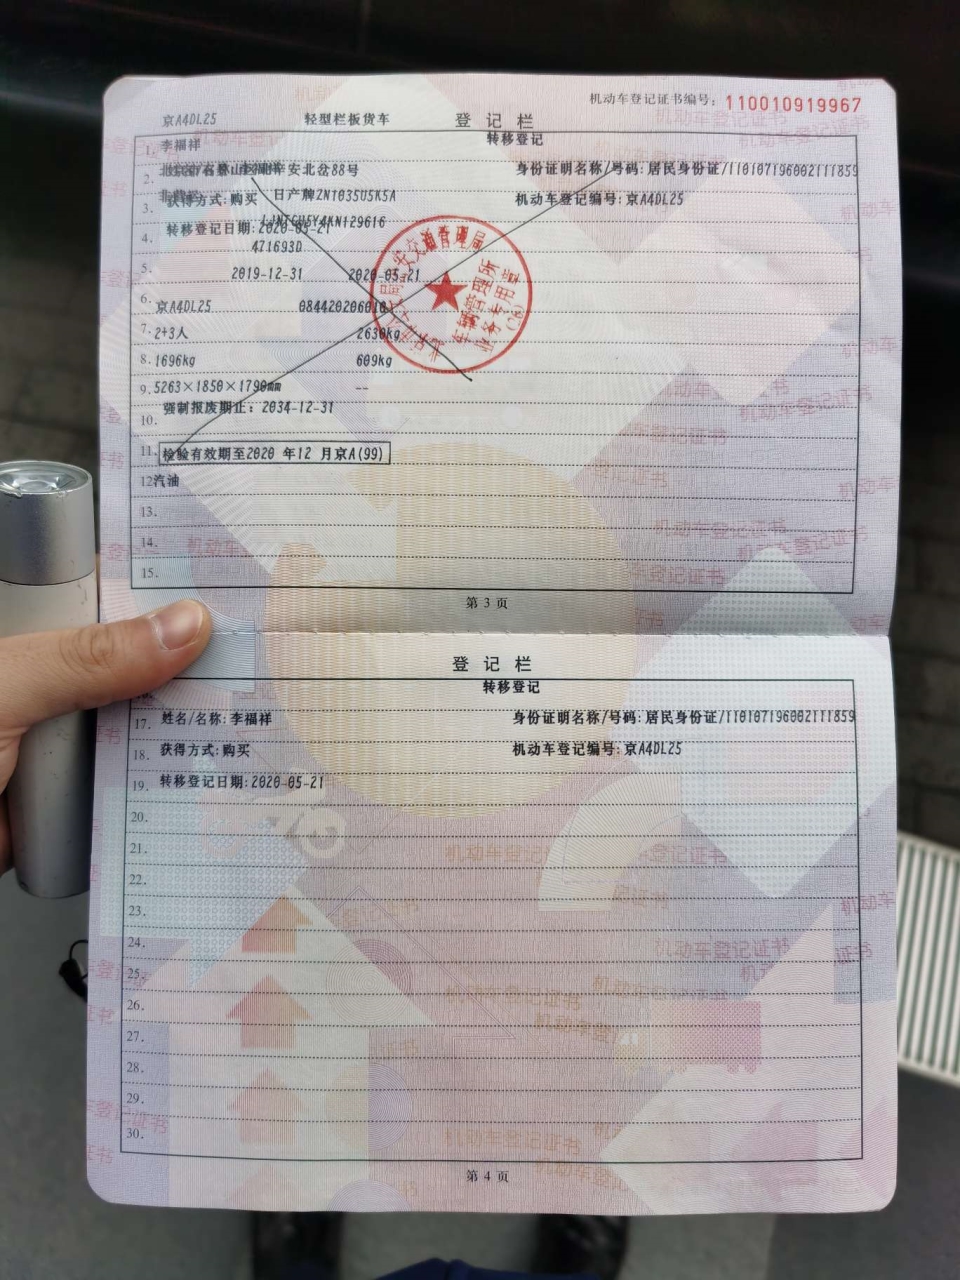 机动车登记证书编号：110010919967
京A4DL25 轻型栏板货车 登记栏
转移登记
1. 李福祥
2. 安北岔88号 身份证明名称/号码:居民身份证/110107196002111859
3. 获得方式:购买 日产牌ZN1035U5K5A 机动车登记编号:京A4DL25
4. 转移登记日期:2020-05-21
471693D
5. 2019-12-31 2020-05-21
6. 京A4DL25
7. 2+3人 2630kg
8. 1696kg 609kg
9. 5263×1850×1790mm --
10. 强制报废期止：2034-12-31
11. 检验有效期至2020 年12 月京A(99)
12. 汽油
13.
14.
15.
第 3 页
登记栏
转移登记
16.
17. 姓名/名称:李福祥 身份证明名称/号码:居民身份证/110107196002111859
18. 获得方式:购买 机动车登记编号:京A4DL25
19. 转移登记日期:2020-05-21
20.
21.
22.
23.
24.
25.
26.
27.
28.
29.
30.
第 4 页